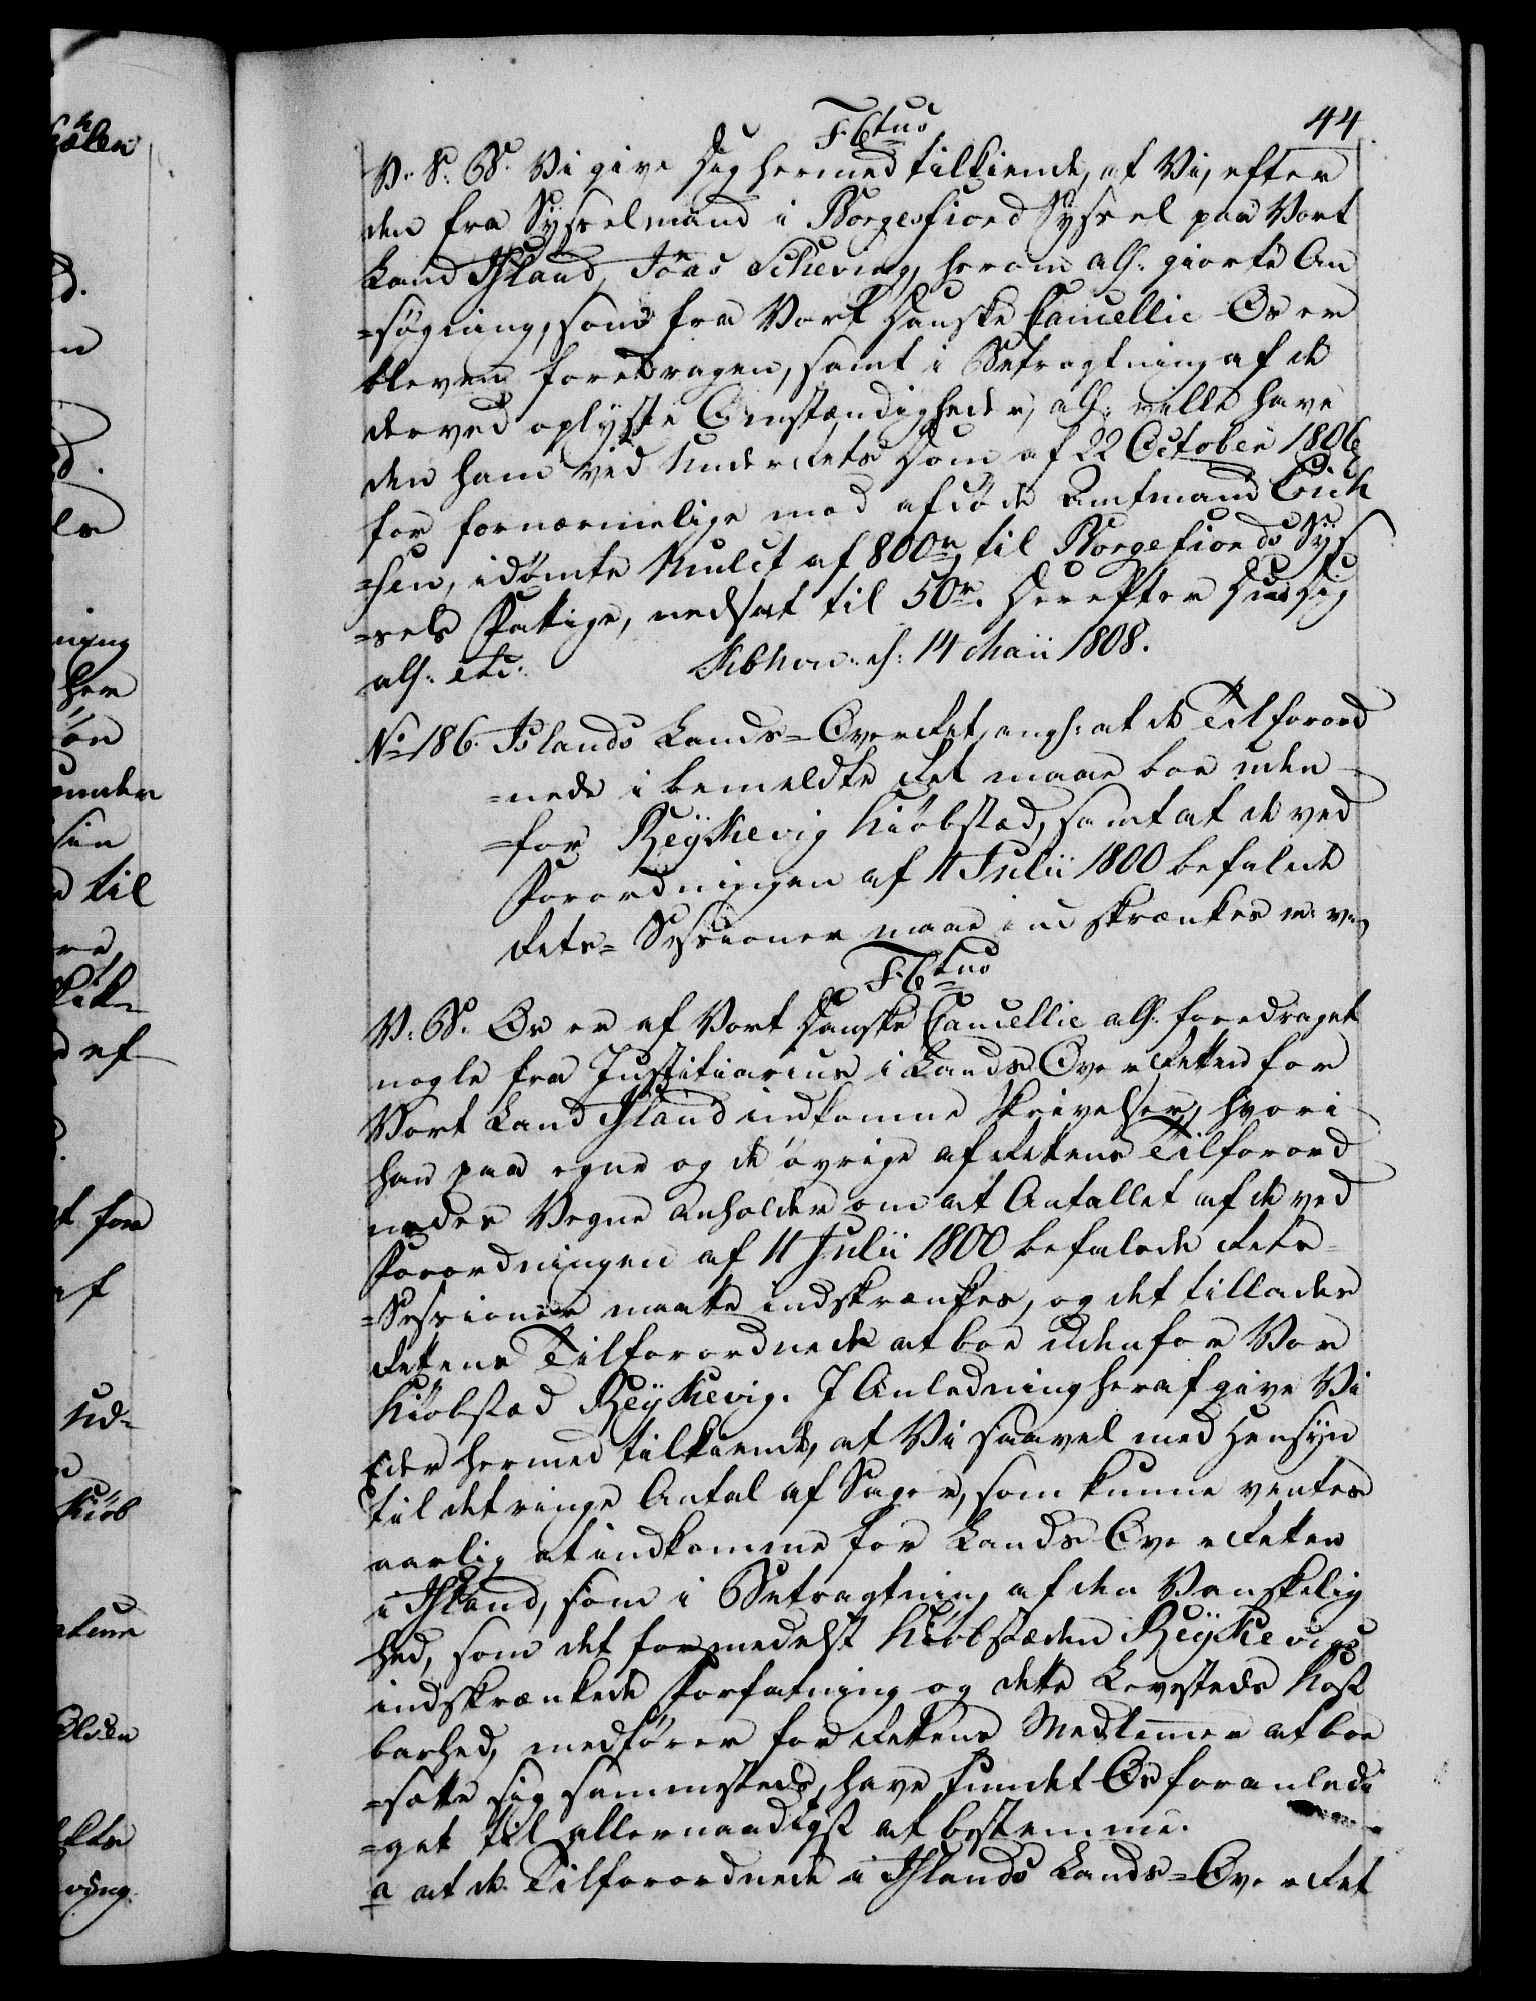 44
F. 6tus
V. S. G. Vi give Dig hermed tilkiende, at Vi, efter
den fra Sysselmand i Borgefiord Syssel paa Vort
Land Island, Jonas Scheving, herom all: giorte An
=søgning, som fra Vort Danske Cancellie Os er
bleven foredragen, samt i Betragtning af de
derved oplyste Omstændigheder, all: ville have
den ham ved Underrets Dom af 22 October 1806
for fornærmelige mod afdøde Amtmand Erich
=sen, idømte Mulct af 800r, til Borgefiords Sys
=sels Fattige, nedsat til 50r. Derefter Du Dig
all: etc: Kbhvn: d: 14 Maii 1808.
No 186. Islands Lands=Overret, angh: at de Tilforord
=nede i bemeldte Ret maae boe uden
=for Reykevig Kiøbstæd, samt at de ved
Forordningen af 11 Julii 1800 befalede
Rets=Sessioner maae indskrænkes m: v:
F. 6tus
V. G. Os er af Vort Danske Cancellie all: foredraget
nogle fra Justitiarius i Lands Overretten for
Vort Land Island indkomne Skrivelser, hvori
han paa egne og de øvrige af Rettens Tilforord
nedes Vegne anholder om at Antallet af de ved
Forordningen af 11 Julii 1800 befalede Rets=
=Sessioner maatte indskrænkes, og det tillades
Rettens Tilforordnede at boe udenfor Vor
Kiøbstæd Reykevig. I Anledning heraf give Vi
Eder hermed tilkiende, at Vi saavel med Hensyn
til det ringe Antal af Sager, som kunne ventes
aarlig at indkomme for Lands Overretten
i Island, som i Betragtning af den Vanskelig
hed, som det formedelst Kiøbstæden Reykevigs
indskrænkede Forfatning og dette Levesteds Kost
barhed, medfører for Rettens Medlemmer at boe
=sætte sig sammesteds, have fundet Os foranledi
=get til allernaadigst at bestemme.
a at de Tilforordnede i Islands Lands=Overret